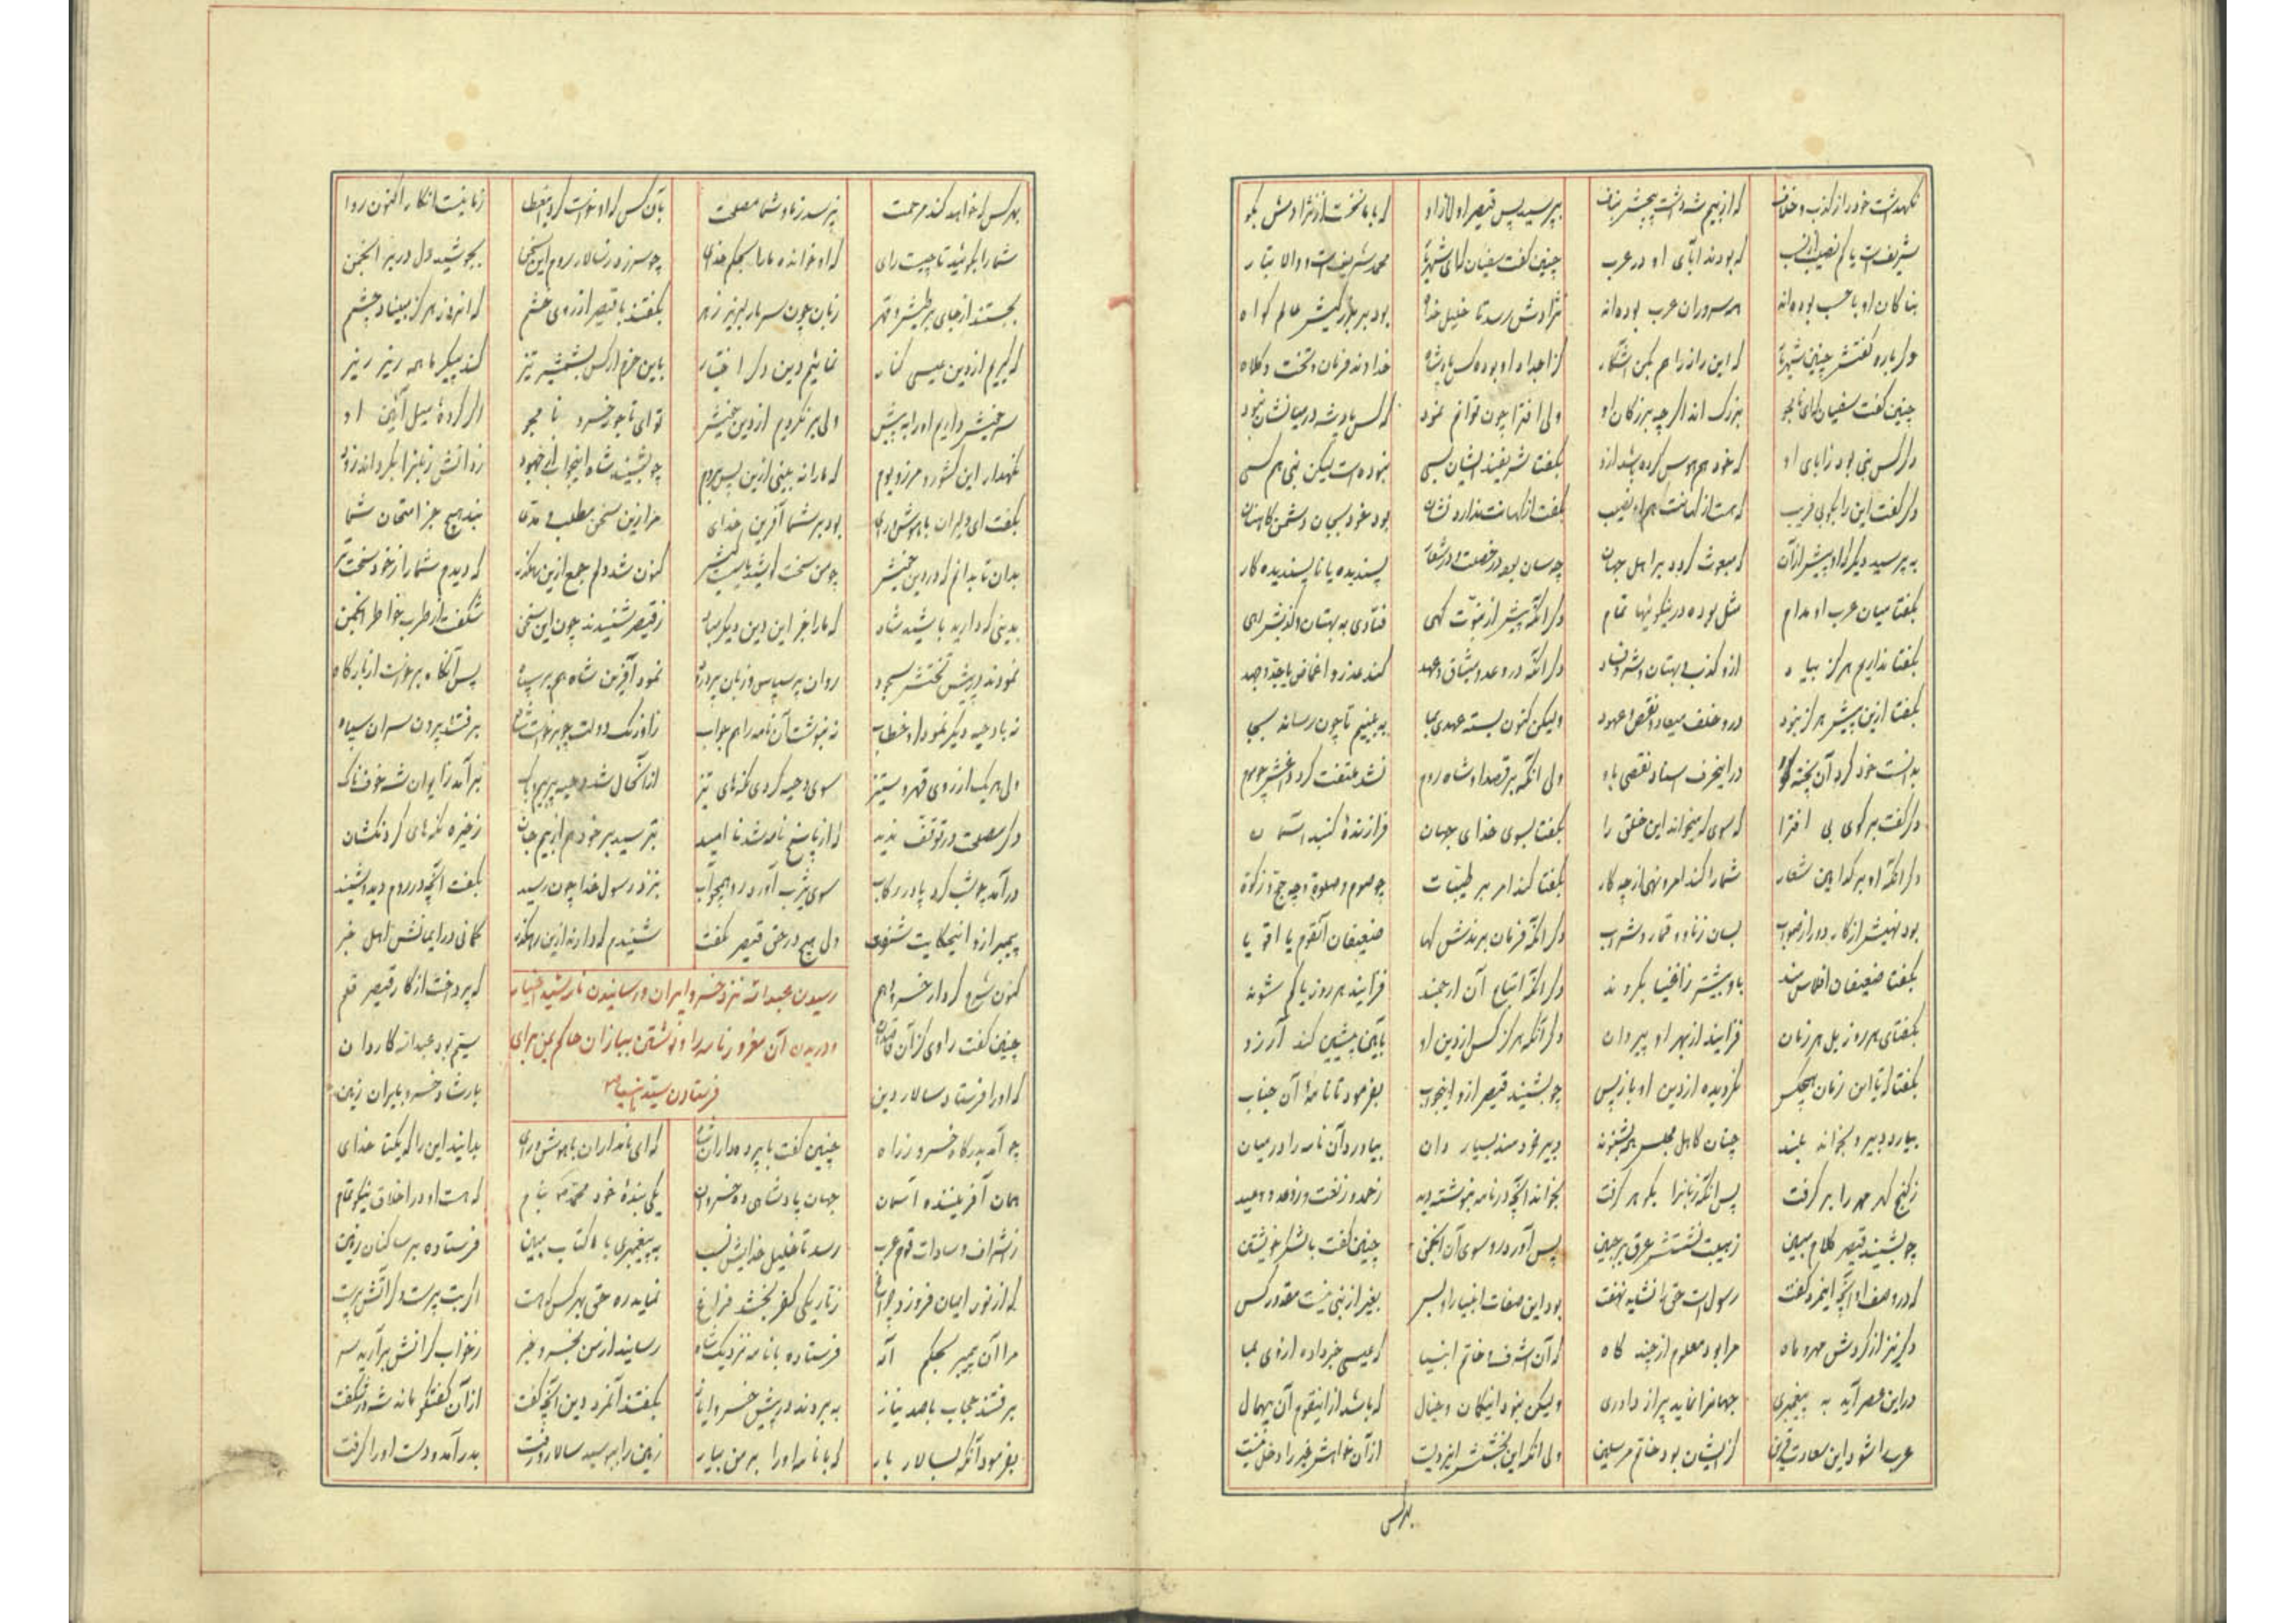 نگهداشت خود را از کذب و خلاف که از بیم شه داشت بیخش بناف بپرسید پس قیصر او لا ازو که با ما نخست از نژادش بگو
شریفست یا کم نصیب از نسب که بودند آبای او در عرب چنین گفت سفیان که ای شهریار محمد شریفست و والا تبار
نیاکان او با حسب بوده‌اند همه سروران عرب بوده‌اند نژادش رسد تا خلیل خدا بود بر بزرگیش عالم گواه
دگر باره گفتش چنین شهریار که این راز را هم بکن آشکار کز اجداد او بوده کس پادشاه خداوند فرمان و تخت و کلاه
چنین گفت سفیان که ای نامجو بزرگ‌اند اگر چه بزرگان او ولی افترا چون توانم نمود که کس پادشه در میانشان نبود
دگر کس نبی بود ز آبای او که خود هم هوس کرده باشد ازو بگفتا شریفند ایشان بسی نبوده است لیکن نبی هم کسی
دگر گفت این را بگو بی فریب که هست از کهانت هم او را نصیب بگفت از کهانت ندارد نشان بود خود بجان دشمن کاهنان
بپرسید دیگر که او پیش از آن که مبعوث گردد بر اهل جهان چه سان بود در خصلت و در شعار پسندیده یا ناپسندیده کار
بگفتا میان عرب او مدام مثل بوده در نیکوئیها تمام دگر آنکه پیش از نبوت گهی فتادی به بهتان و کذبش رهی
بگفتا نداریم هرگز بیاد ازو کذب و بهتان و شر و فساد دگر آنکه در وعد و میثاق و عهد کند عذر و اغماض یا جد و جهد
بگفتا ازین پیش هرگز نبود درو خلف میعاد و نقض عهود ولیکن کنون بسته عهدی بما ببینیم تا چون رساند بجا
بدانست خود کرد آن پخته در این حرف اسناد نقصی باو ولی آنکه بر قصد او شاه روم نشد ملتفت کرد
دگر گفت برگوی بی افترا که سوی که میخواند این خلق را بگفتا بسوی خدای جهان فرازندهٔ گنبد آسمان
دگر آنکه او بر کدامین شعار شما را کند امر و نهی از چه کار بگفتا کند امر بر طیبات چو صوم و صلوة و چه حج و زکوة
بود نهیش از کار دور از صواب بسان زنا و قمار و شراب دگر آنکه فرمان برندش کها ضعیفان آنقوم یا اقویا
بگفتا ضعیفان افلاس‌مند باو بیشتر ز اغنیا بگروند دگر آنکه اتباع آن ارجمند فزایند هر روز یا کم شوند
بگفتا که هر روز بل هر زمان فزایند از بهر او پیروان دگر آنکه هرگز کس از دین او بآئین پیشین کند آرزو
بگفتا که تا این زمان هیچکس نگردیده از دین او باز پس چو بشنید قیصر ازو این جواب بفرمود تا نامهٔ آن جناب
بیارد دبیر و بخواند بلند چنان کاهل مجلس همه بشنوند دبیر خردمند بسیار دان بیاورد آن نامه را در میان
ز گنج گهر مهر را بر گرفت پس آنگه زبانرا بگوهر گرفت بخواند آنچه در نامه بنوشته دید ز حمد و ز نعت و ز وعد و وعید
چو بشنید قیصر کلام مبین ز هیبت نشستش عرق بر جبین پس آورد رو سوی آن انجمن چنین گفت با لشکر خویشتن
که در وصف او آنچه اینمرد گفت رسول است حق را نشاید نهفت بود این صفات انبیا را و بس بغیر از نبی نیست مقدور کس
دگر نیز از گردش مهر و ماه مرا بود معلوم از چند گاه که آن اشرف و خاتم انبیا که عیسی خبر داده از وی بما
در این عصر آید به پیغمبری جهانرا نماید پر از داوری ولیکن نبود اینگمان و خیال که باشد از اینقوم آن بیهمال
عرب را شود این سعادت قرین کز ایشان بود خاتم مرسلین ولی آنکه این بخشش ایزدیست از آن خواهش غیر را دخل نیست
بهر کس
بهر کس که خواهد کند مرحمت نپرسد ز ما و شما مصلحت بآن کس که او خواست کرد این عطا ز ما نیست انکار اکنون روا
شما را بگوئید تا چیست رای که او خوانده ما را بحکم خدای چو سر زد ز سالار روم این سخن بجوشید دل در بر انجمن
بجستند از جای پر طیش و قهر زبان چون سر مار لبریز زهر بگفتند با قیصر از روی خشم که امروز هرگز مبیناد چشم
که گیریم از دین عیسی کنار نمائیم دین دگر اختیار باین جرم ار کس بشمشیر تیز کند پیکر ما همه ریز ریز
سر خویش داریم او را به پیش ولی بر نگردیم از دین خویش تو ای تاجور خسرو نامجو اگر کردهٔ میل آئین او
نگهدار این کشور و مرز و بوم که ما را نه بینی ازین پس بروم چو بشنید شاه اینجواب از جنود
بگفت ای دلیران با هوش و رای بود بر شما آفرین خدای مرا زین سخن مطلب و مدعا نبد هیچ جز امتحان شما
بدان تا بدانم که در دین خویش چو من سخت باشید یا سست کیش کنون شد دلم جمع ازین رهگذر که دیدم شما را ز خود سخت‌تر
بدینی که دارید باشید شاد که ما را جز این دین دیگر مباد ز قیصر شنیدند چون این سخن شکفت از طرب خاطر انجمن
نمودند در پیش تختش سجود روان پر سپاس و زبان پر درود نمود آفرین شاه هم بر سپاه پس آنگاه برخاست از بارگاه
نه با دحیه دیگر نمود او خطاب نه بنوشت آن نامه را هم جواب ز اورنگ دولت چو برخاست شاه برفتند بیرون سران سپاه
ولی هر یک از روی قهر و ستیز سوی دحیه کردی نگه‌های تیز از آن حال شد دحیه پر بیم و باک بر آمد ز ایوان شه خوفناک
دگر مصلحت در توقف ندید که از پاسخ نامه شد ناامید بترسید بر خود هم از بیم جان ز خیره نگه‌های گردنکشان
درآمد بره شب کرد پا در رکاب سوی یثرب آورد رو بیجواب بنزد رسول خدا چون رسید بگفت آنچه در روم دید و شنید
پیمبر ازو اینحکایت شنفت ولی هیچ در حق قیصر نگفت شنیدم که دارند ازین رهگذر گمانی در ایمانش اهل خبر
رسیدن عبدالله نزد خسرو ایران و رسانیدن نامه سید اخیار
و دریدن آن مغرور نامه را و نوشتن ببازان حاکم یمن برای
فرستادن سید انبیا
کنون بشنو کردار خسرو هم که پرداخت از کار قیصر قلم
چنین گفت راوی کز آن قاصدان سیم بود عبدالله کاردان
که او را فرستاد سالار دین بارشاد خسرو بایران زمین
چو آمد بدرگاه خسرو ز راه چنین گفت با پرده‌داران شاه که ای نامداران با هوش و رای بدانید این را که یکتا خدای
همان آفریننده آسمان جهان پادشاهی ده خسروان یکی بندهٔ خود محمد بنام که هست او در اخلاق نیکو تمام
ز اشراف و سادات قوم عرب رسد تا خلیل خدایش نسب به پیغمبری با کتاب مبین فرستاده بر ساکنان زمین
که از نور ایمان فروزد چراغ ز تاریکی کفر بخشد فراغ نماید ره حق بهر کس که هست اگر بت پرست و گر آتش پرست
مرا آن پیمبر بحکم اله فرستاده با نامه نزدیک شاه رسانید از من بخسرو خبر ز خواب گرانش برآرید سر
برفتند حجاب با صد نیاز به بردند در پیش خسرو نماز بگفتند آنمرد دین آنچه گفت از آن گفتگو ماند شه در شگفت
بفرمود آنگه بسالار بار که با نامه او را بر من بیار زمین را ببوسید سالار و رفت بدر آمد و دست او را گرفت